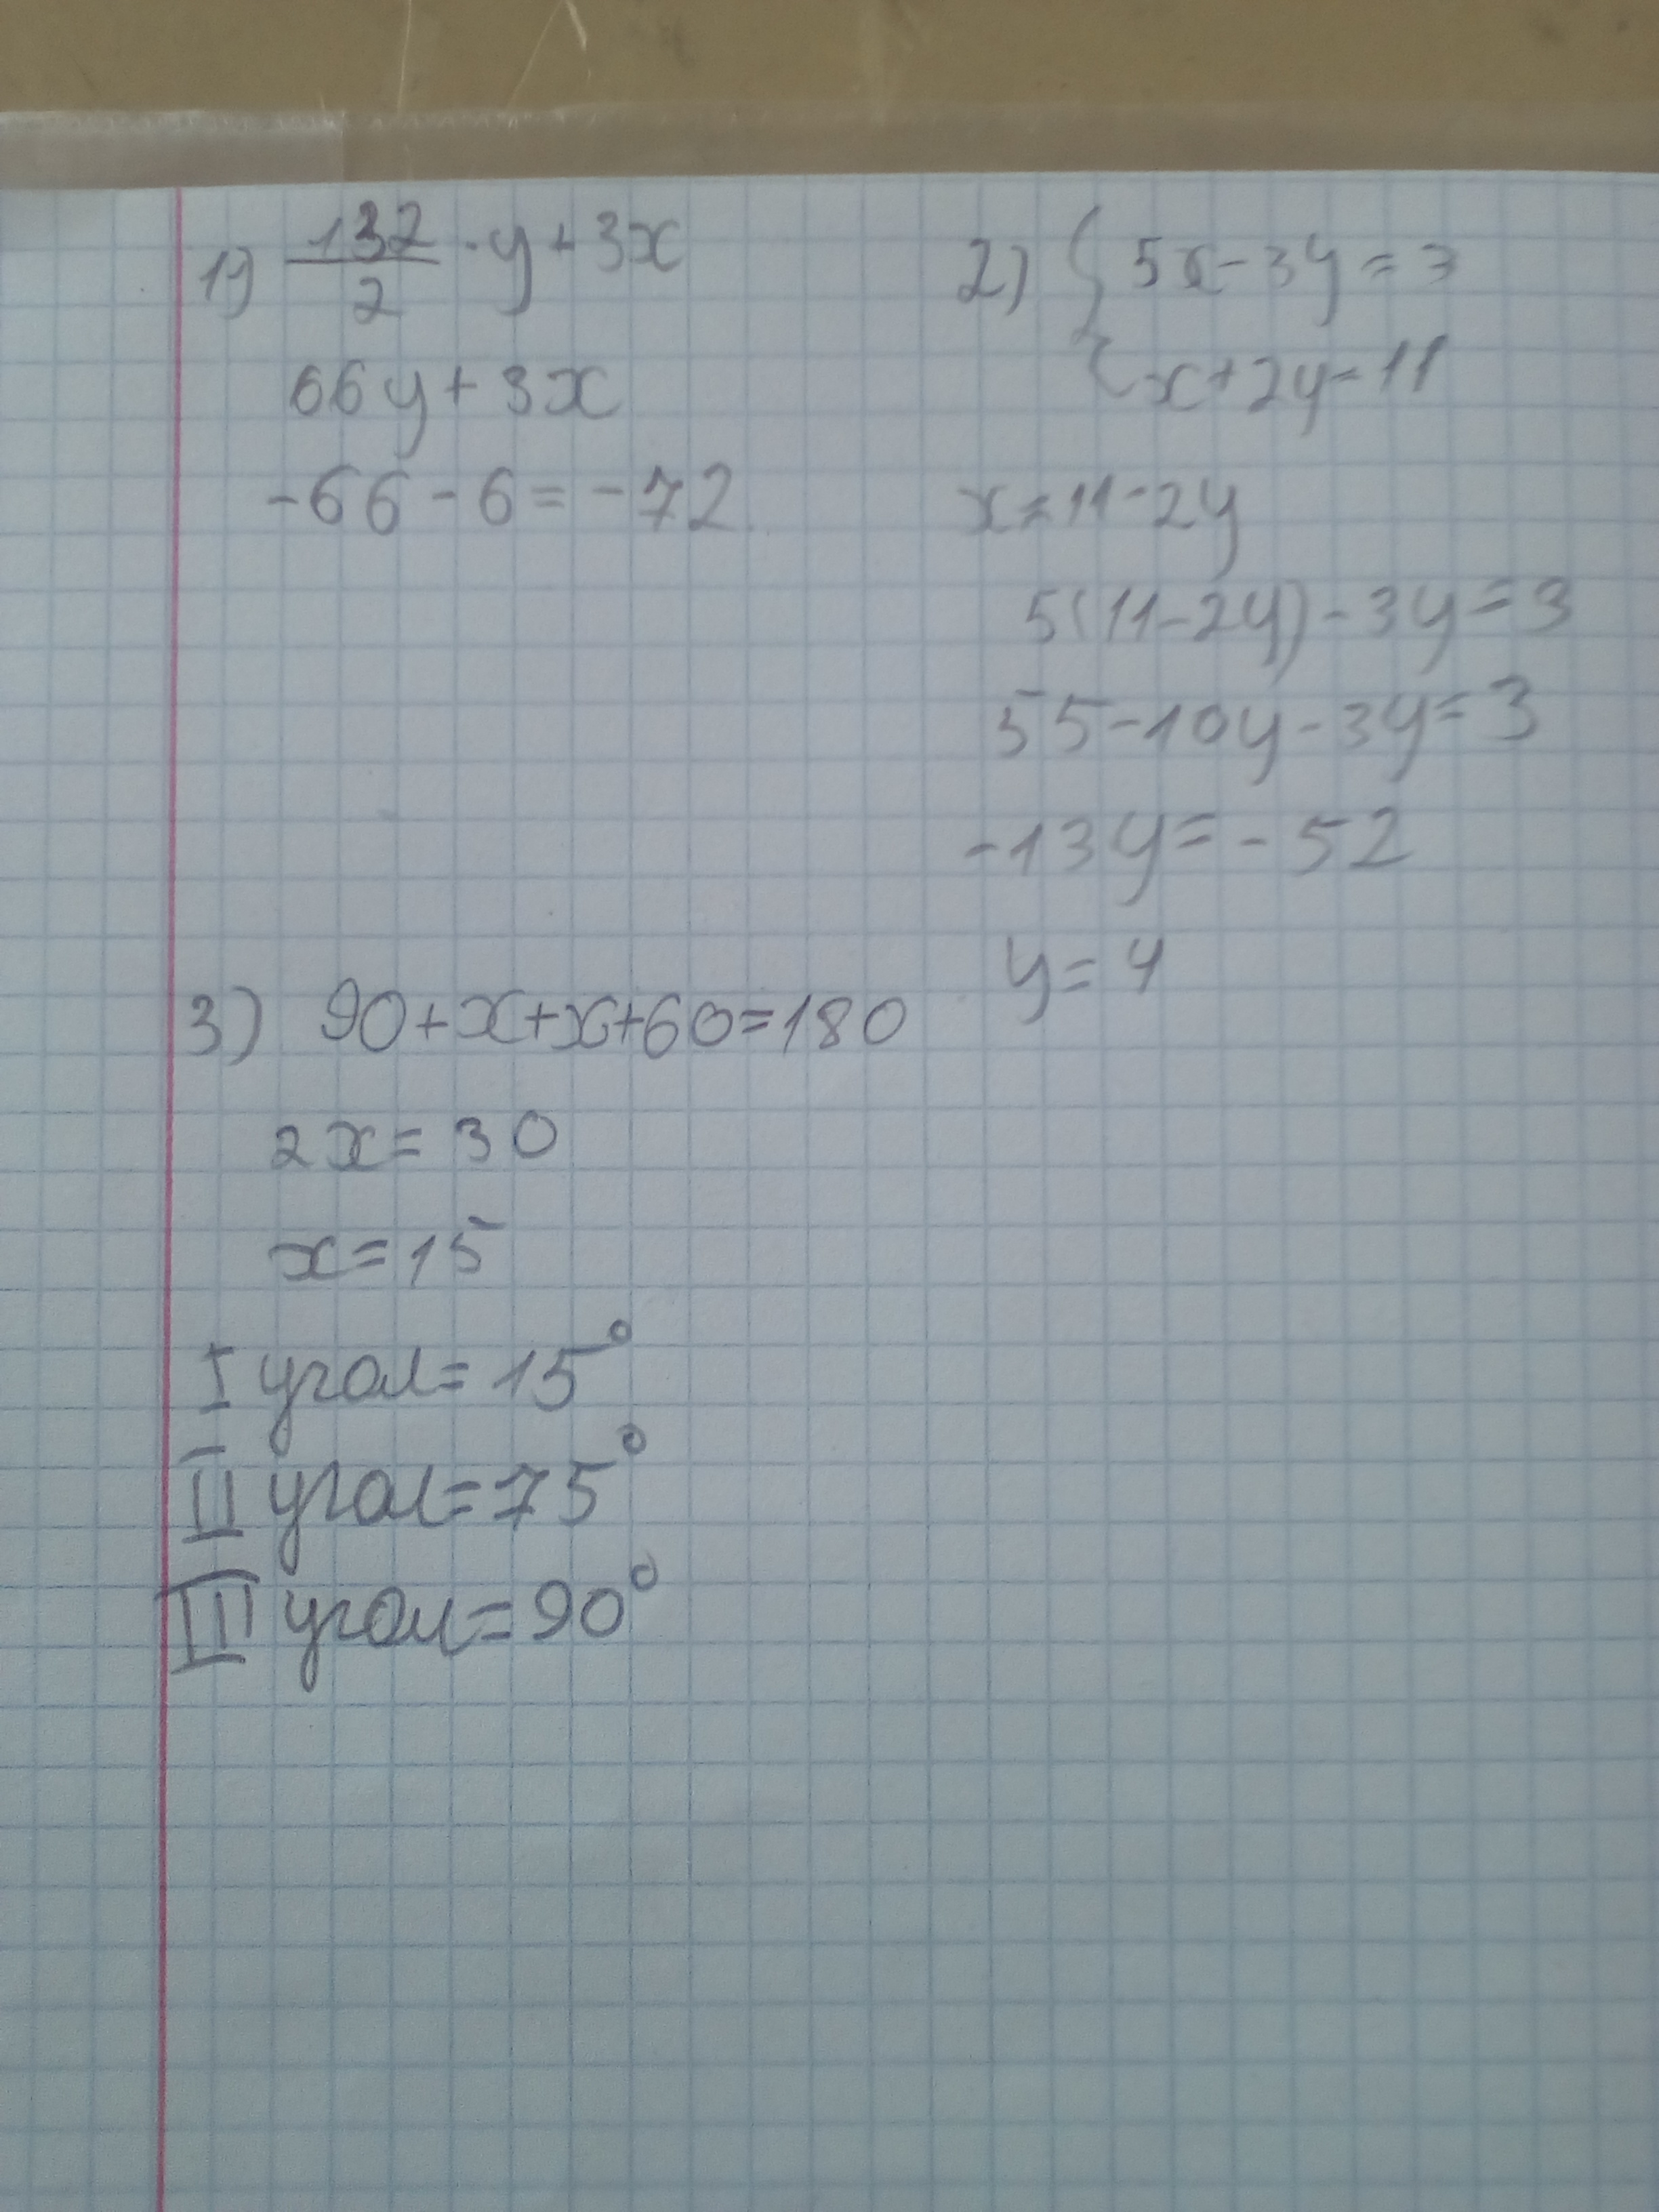 1) 132/2 · y + 3x
66y + 3x
-66 - 6 = -72
2) { 5x - 3y = 3
{ x + 2y = 11
x = 11 - 2y
5(11 - 2y) - 3y = 3
55 - 10y - 3y = 3
-13y = -52
y = 4
3) 90 + x + x + 60 = 180
2x = 30
x = 15
I угол = 15°
II угол = 75°
III угол = 90°